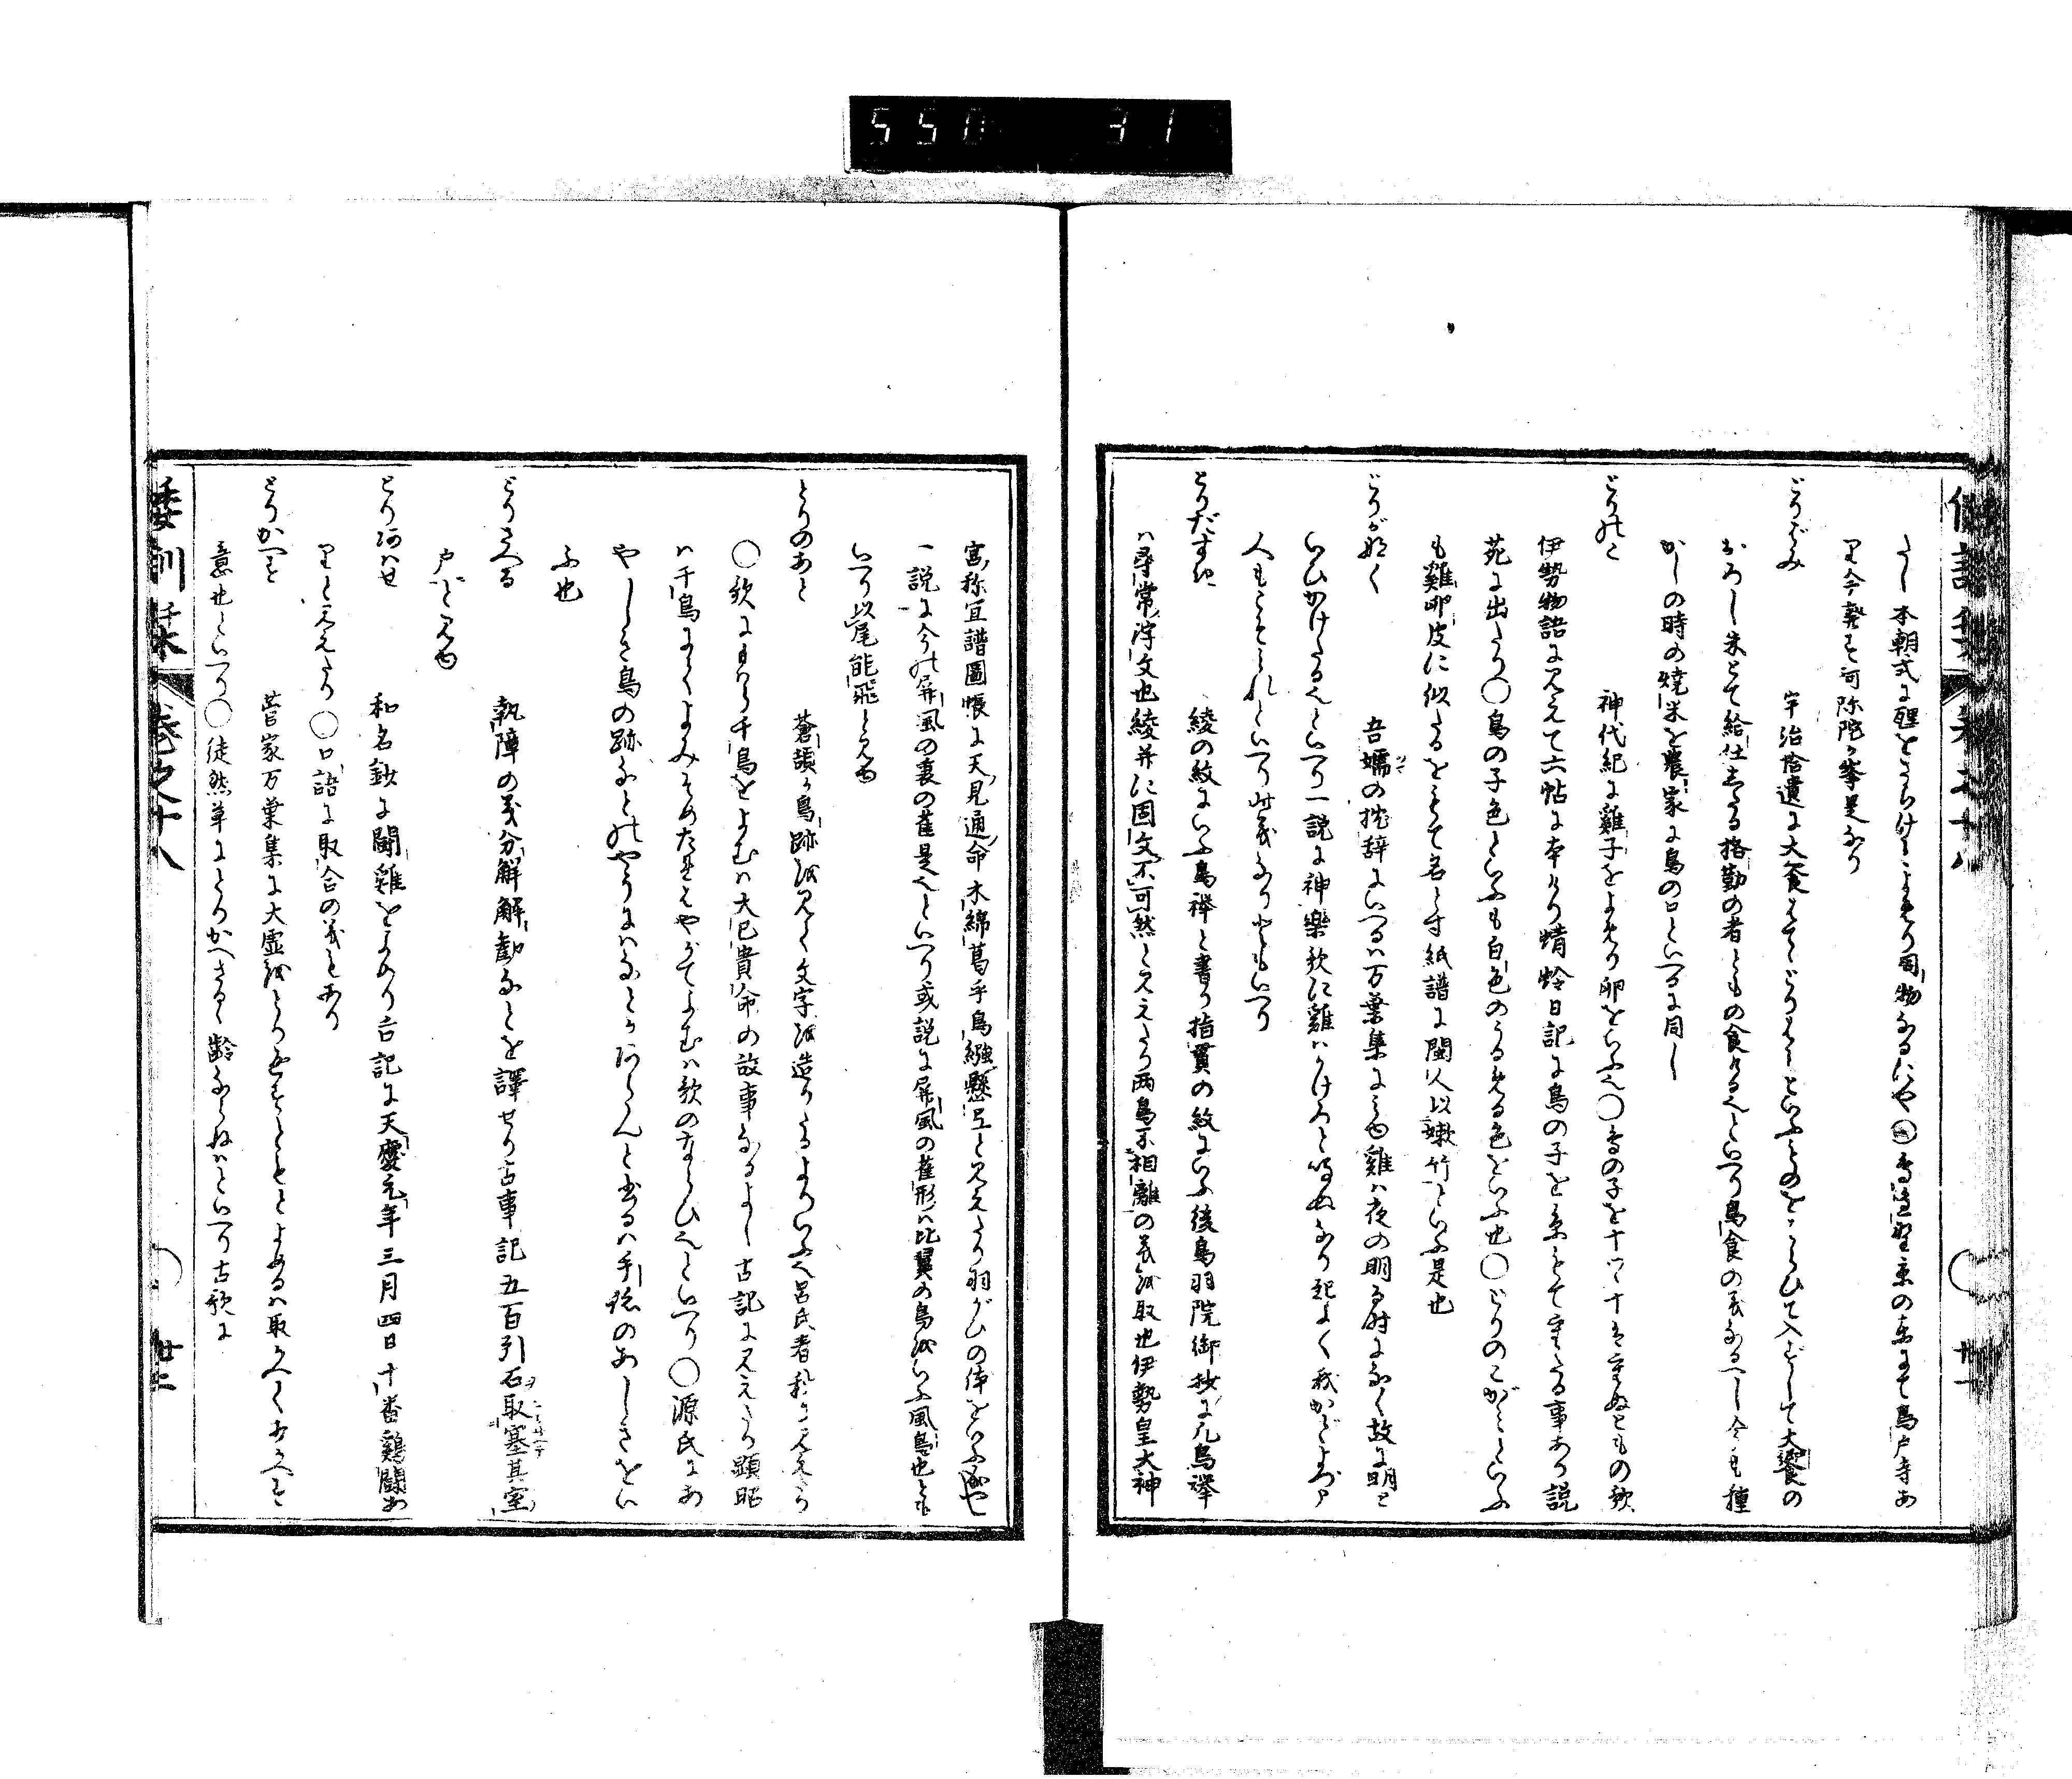 550 31
うし本朝式に貍をよめり同物なるにや
り今廃す阿弥陀か峯是なり
とりばみ 宇治拾遺に大食はてゝとりはみといふものをはらひて入ずして大饗の
おろし米とて給仕したる格勤の者ともの食けるといへり鳥食の義なるへし今も種
かしの時の焼米を農家に鳥の口といへるに同し
とりのこ 神代紀に雞子をよめり卵をいふ也〇鳥の子を十つゝ十は重ぬともの歌
伊勢物語に見えて六帖に本けり蜻蛉日記に鳥の子を糸して重たる事あり説
苑に出たり〇鳥の子色といふも白色のうるめる色をいふ也〇とりのこがみといふ
も雞卵皮に似たるをもて名とす紙譜に閩人以嫩竹といふ是也
とりがなく 吾嬬の枕辞にいへるハ万葉集にみゆ雞ハ夜の明る時になく故に明と
いひかけたる也といへり一説に神楽歌に雞ハかけろと鳴ぬなり起よ〳〵我かどよづま
人もこそみれといへり此義なりともいへり
とりだすき 綾の紋にいふ鳥襷と書り指貫の紋にいふ後鳥羽院御抄に凡鳥襷
ハ尋常浮文也綾并に固文不可然と見えたり両鳥不相離の義を取也伊勢皇大神
宮称宜譜圖帳に天見通命木綿葛乎鳥繦懸弖と見えたり羽がひの体をいふ成へし
一説に今の屏風の裏の雀是也といへり或説に屏風の雀形ハ比翼の鳥をいふ風鳥也とも
いへり以尾能飛と見ゆ
とりのあと 蒼頡か鳥跡を見て文字を造りたるよりいふ也呂氏春秋に見えたり
〇歌にまれら千鳥をよむハ大已貴命の故事なるよし古記に見えたり顕昭
ハ千鳥によくよみそめたれはやかてよむハ歌のならひ也といへり〇源氏にあ
やしき鳥の跡なとのやうにハなとかあらんと書るハ手跡のあしきをい
ふ也
とりさへる 執障の義分解解勸なとを譯せり古事記五百引石取塞其室
戸どみゆ
とりあハせ 和名鈔に闘雞をよめり古記に天慶元年三月四日十番鶏闘あ
りと見えたり〇口語に取合の義もあり
とりかへす 菅家万葉集に大虚をとり返すともとよめるハ取かへくすかへす
意也といへり〇徒然草にとりかへさるゝ齢ならねハといへり古歌に
倭訓栞 巻之十八